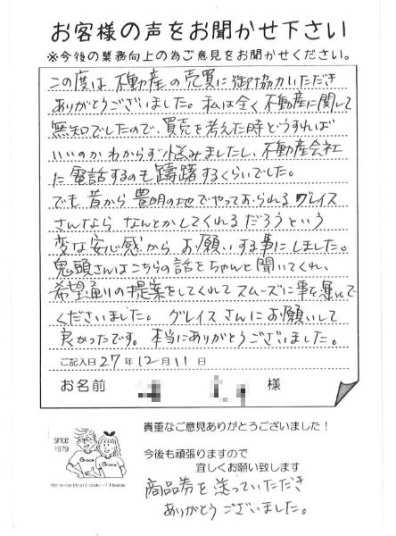 お客様の声をお聞かせ下さい
※今後の業務向上の為ご意見をお聞かせください。
この度は、不動産の売買に御協力いただき
ありがとうございました。私は全く不動産に関して
無知でしたので、買売を考えた時どうすれば
いいのかわからず悩みましたし、不動産会社
に電話するのも躊躇するくらいでした。
でも昔から豊明の地でやっておられるグレイス
さんなら なんとかしてくれるだろうという
変な安心感からお願いする事にしました。
鬼頭さんはこちらの話をちゃんと聞いてくれ、
希望通りの提案をしてくれてスムーズに事を運んで
くださいました。グレイスさんにお願いして
良かったです。本当にありがとうございました。
ご記入日27年12月11日
お名前 様
貴重なご意見ありがとうございました!
since
1979
Grace
Grace
今後も頑張りますので
宜しくお願い致します
商品券を送っていただき
ありがとうございました。